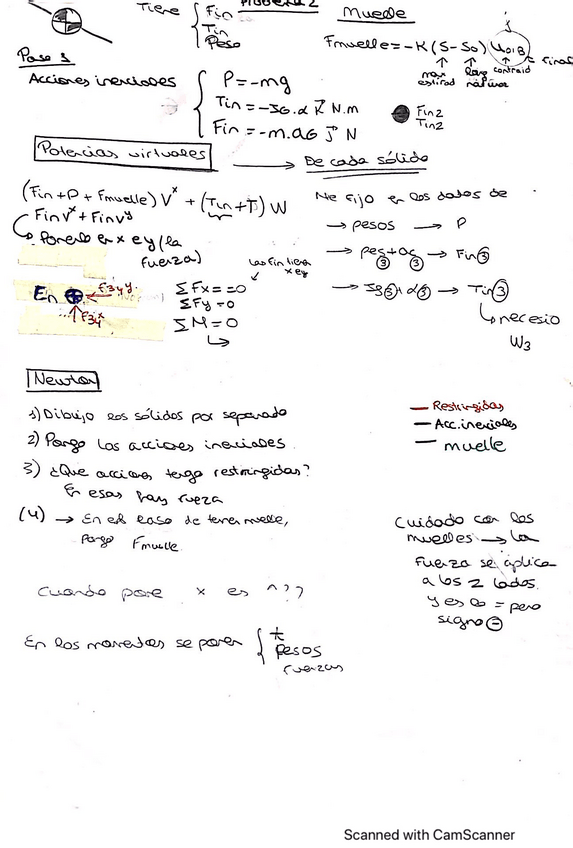 Problema 2
Tiene { Fin
Tin
Peso
Muelle
Fmuelle = -K (S-So) u01B
max estirad
long natural
contraid
Paso 1
Acciones inerciales { P = -mg
Tin = -JG.α k N.m
Fin = -m.aG J N
Fin2
Tin2
Potencias virtuales → De cada sólido
(Fin + P + Fmuelle) Vˣ + (Tin + T) W
Finvˣ + Finvʸ
↳ Ponerlo en x e y (la fuerza)
Me fijo en los datos de
→ pesos → P
→ pes + aG → Fin
3 3 3
→ JG3 + α3 → Tin3
↳ necesio
W3
Las Fin tiene
x e y
En ⊕ ← F34y
F34x
ΣFx = =0
ΣFy = 0
ΣM = 0
↳
Newton
1) Dibujo los sólidos por separado
2) Pongo las acciones inerciales
3) ¿Que acciones tengo restringidas?
En esas hay fuerza
(4) → En el caso de tener muelle,
pongo Fmuelle
— Restringidas
— Acc. inerciales
— muelle
Cuidado con los
muelles → la
Fuerza se aplica
a los 2 lados.
y es lo = pero
signo ⊖
Cuando pone x es ^??
En los momentos se ponen { t
Pesos
fuerzas
Scanned with CamScanner